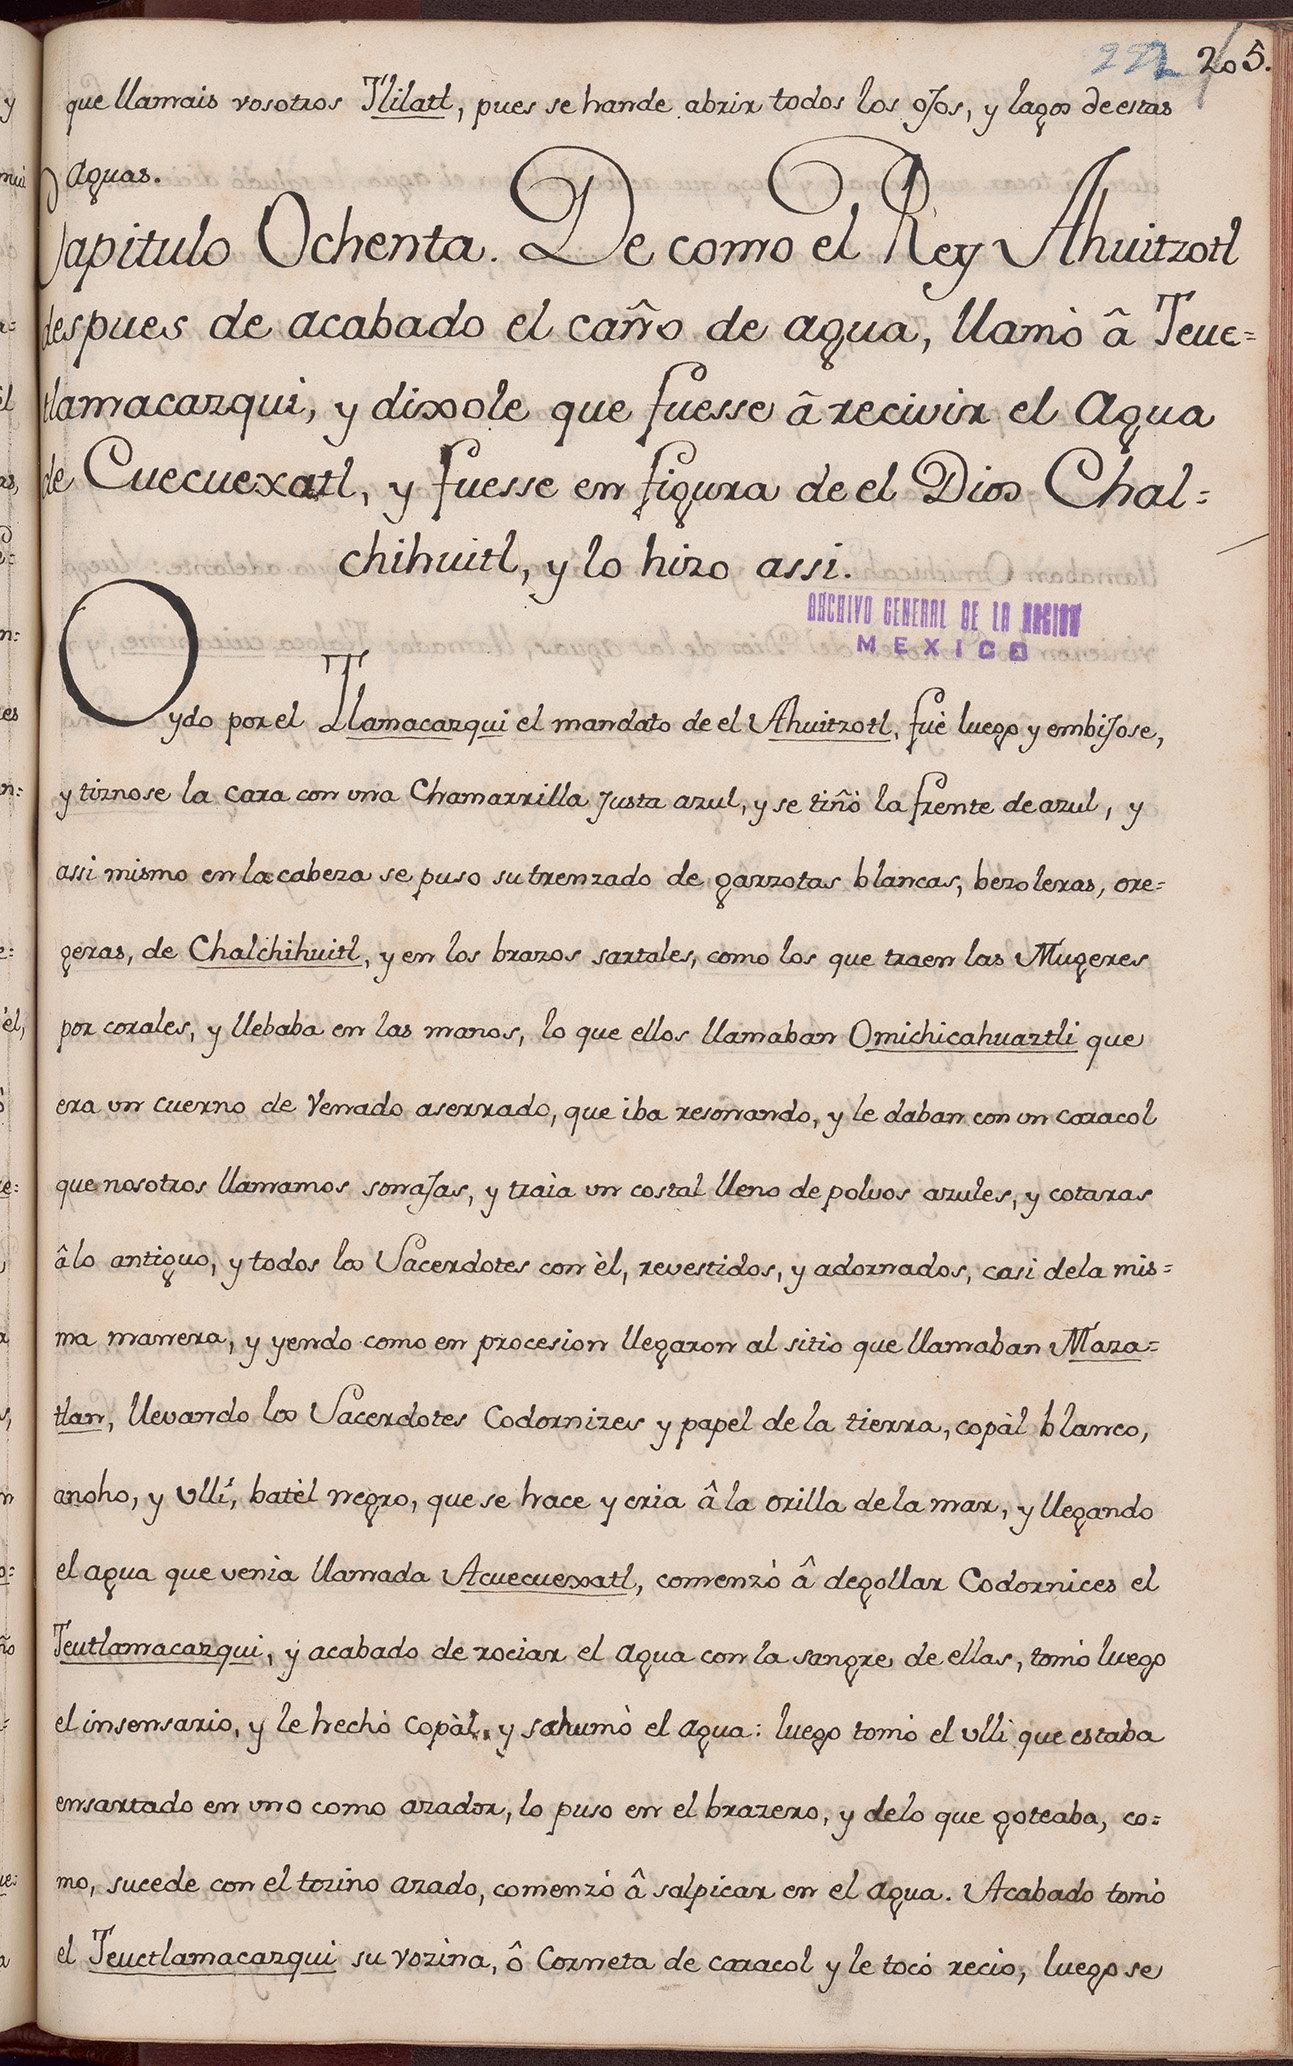 222 205.
que llamais vosotros Tlilatl, pues se hande abrir todos los oJos, y lagos de estas
aguas.
Capitulo Ochenta. De como el Rey Ahuitzotl
despues de acabado el caño de agua, llamò â Teuc=
tlamacazqui, y dixole que fuesse â recivir el agua
de Cuecuexatl, y fuesse en figura de el Dios Chal=
chihuitl, y lo hizo assi.
ARCHIVO GENERAL DE LA NACION
MEXICO
Oydo por el Tlamacazqui el mandato de el Ahuitzotl, fuè luego y embiJose,
y tiznose la cara con una Chamarrilla Justa azul, y se tiñò la frente de azul, y
assi mismo en la cabeza se puso su trenzado de garzotas blancas, bezoleras, ore=
geras, de Chalchihuitl, y en los brazos sartales, como los que traen las Mugeres
por corales, y llebaba en las manos, lo que ellos llamaban Omichicahuaztli que
era un cuerno de Venado aserrado, que iba resonando, y le daban con un caracol
que nosotros llamamos sonaJas, y traìa un costal lleno de poluos azules, y cotaras
â lo antiguo, y todos los Sacerdotes con èl, revestidos, y adornados, casi dela mis=
ma manera, y yendo como en procesion llegaron al sitio que llamaban Maza=
tlan, llevando los Sacerdotes Codornizes y papel de la tierra, copàl blanco,
anoho, y Ulli, batèl negro, que se hace y cria â la orilla de la mar, y llegando
el agua que venia llamada Acuecuexatl, comenzò â degollar Codornices el
Teutlamacazqui, y acabado de rociar el agua con la sangre de ellas, tomò luego
el insensario, y le hechò copàl, y sahumò el agua: luego tomò el ulli que estaba
ensartado en uno como azador, lo puso en el brazero, y delo que goteaba, co=
mo, sucede con el tozino azado, comenzò â salpicar en el agua. Acabado tomò
el Teuctlamacazqui su vozina, ô Corneta de caracol y le tocò recio, luego se